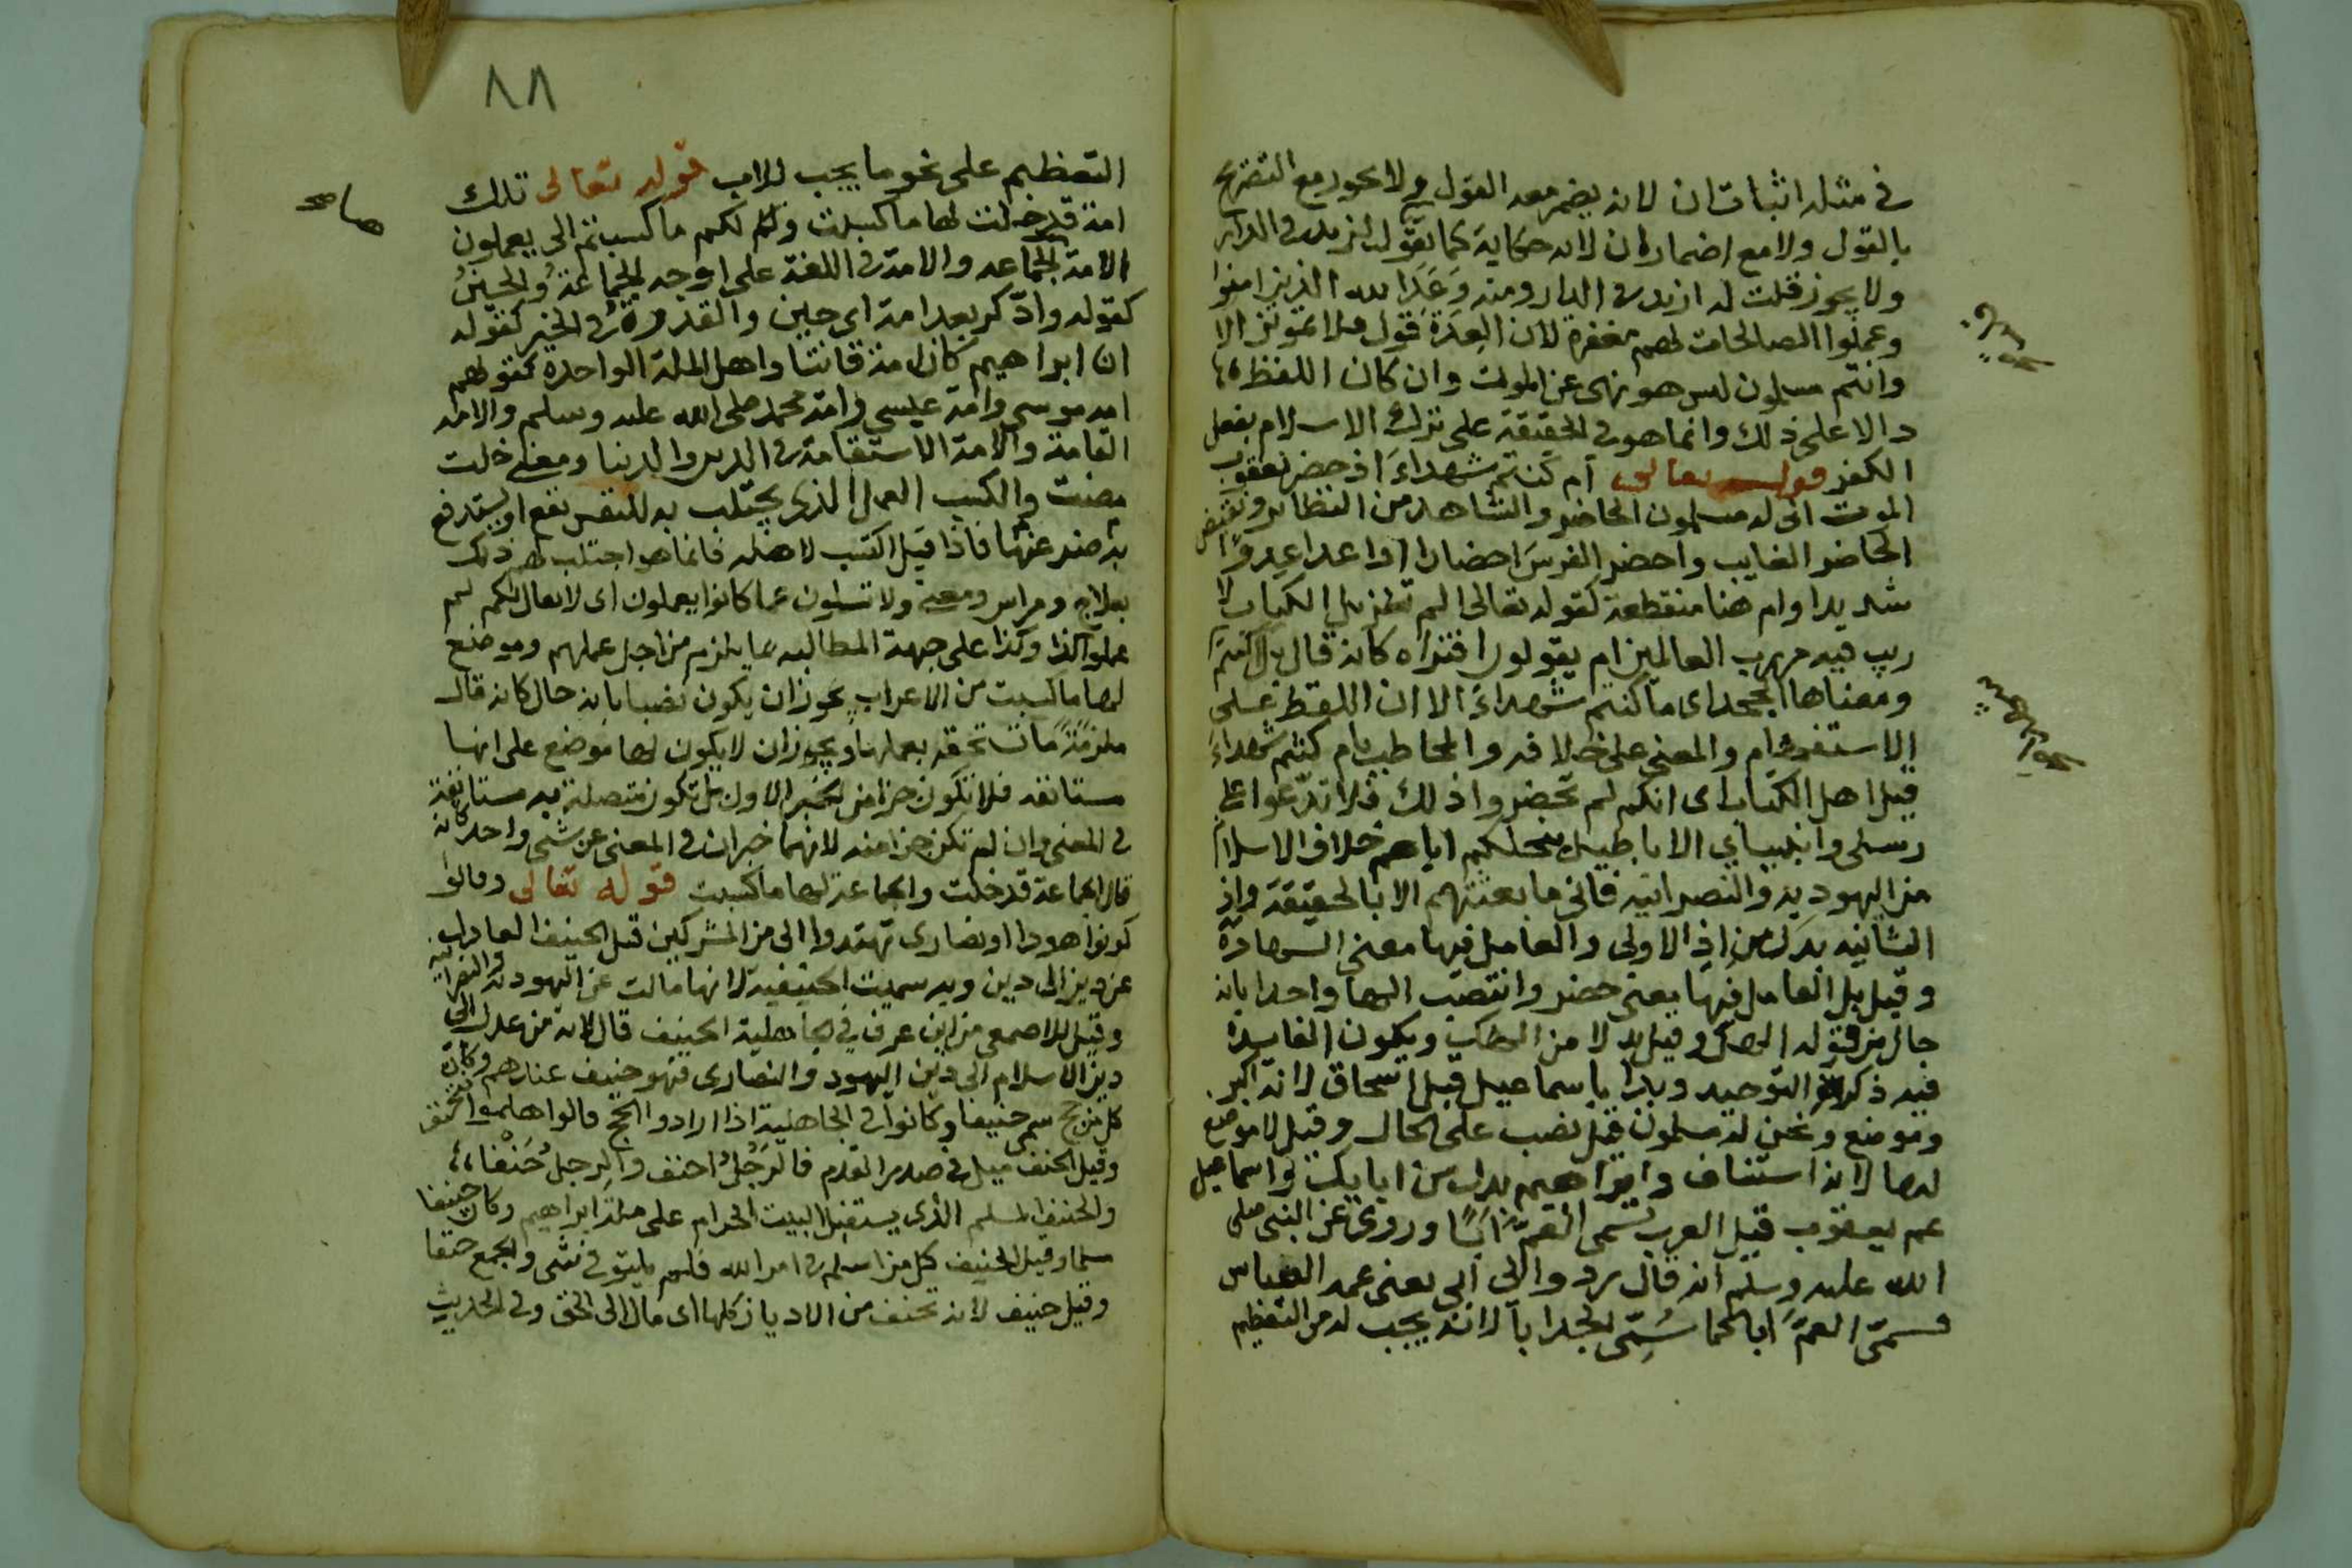 في مثله اثبات ان لانه يضمر معه القول ولا يجوز مع التصريح
بالقول ولا مع اضماره ان لانه حكاية كما تقول لزيد في الدار
ولا يجوز قلت له ان زيد في الدار ومنه وَعَدَ الله الذين امنوا
وعملوا الصالحات لهم مغفرة لان العِدَةَ قول فلا تموتن الا
وانتم مسلمون ليس هو نهى عن الموت وان كان اللفظ
دالا على ذلك وانما هو في الحقيقة على ترك الاسلام بفعل
الكفر قوله تعالى ام كنتم شهداءَ اذ حضر يعقوب
الموت الى له مسلمون الحاضر والشاهد من النظاير ونقيض
الحاضر الغايب واحضر الفرسَ احضارا اذا عدا عِدوًا
شديدا وام هنا منقطعة كقوله تعالى الم تنزيل الكتاب لا
ريب فيه من رب العالمين ام يقولون افتراه كانه قال بل اكنتم
ومعناها الجحد اى ما كنتم شهداءَ الا ان اللفظ على
الاستفهام والمعنى على خلافه والمخاطب بام كنتم شهداءَ
قيل اهل الكتاب اى انكم لم تحضروا ذلك فلا تدّعوا على
رسلى وانبيايى الاباطيل بنحلكم اياهم خلاف الاسلام
من اليهودية والنصرانية فانى ما بعثتهم الا بالحقيقة واذ
الثانيه بدل من اذ الاولى والعامل فيها معنى الشهادة
وقيل بل العامل فيها معنى حضر وانتصب الها واحدا بانه
حال من قوله الهك وقيل بدلا من الهك ويكون الفايدة
فيه ذكر التوحيد وبدا باسماعيل قبل اسحاق لانه اكبر
وموضع ونحن له مسلمون قيل نصب على الحال وقيل لا موضع
لها لانه استئناف وابراهيم بدل من ابايك واسماعيل
عم يعقوب قيل العرب تسمى العَمَّ ابًا وروى عن النبى صلى
الله عليه وسلم انه قال ردوا الى ابى يعنى عمه العباس
فسمّى العمَّ ابا كما سُمِّى الجد اباَ لانه يجب له من التعظيم
٨٨
التعظيم على نحو ما يجب للاب قوله تعالى تلك
امة قد خلت لها ما كسبت ولكم ما كسبتم الى يعملون
الامة الجماعه والامة في اللغة على اوجه الجماعةُ والحينُ
كقوله وادّكر بعد امة اى حين والقدوةُ في الخير كقوله
ان ابراهيم كان امة قانتا واهل الملة الواحدة كقولهم
امه موسى وامة عيسى وامة محمد صلى الله عليه وسلم والامه
القامة والامة الاستقامة في الدين والدنيا ومعنى خلت
مضت والكسب العمل الذى يجتلب به للنفس نفع او يستدفع
به ضرر عنها فاذا قيل اكتسب لاهله فانما هو اجتلب لهم ذلك
بعلاج ومراس ومعنى ولا تسئلون عما كانوا يعملون اى لا يقال لكم لم
عملوا كذا وكذا على جهة المطالبه بما يلزم من اجل عملهم وموضع
لها ما كسبت من الاعراب يجوز ان يكون نصبا بانه حال كانه قال
ملزمَةً ما تستحقه بعملها ويجوز ان لا يكون لها موضع على انها
مستانفه فلا تكون جزءا من الخبر الاول بل تكون متصلة به مستانفة
في المعنى وان لم تكن جزءا منه لانهما خبران في المعنى عن شئ واحد كانه
قال الجماعة قد خلت والجماعة لها ما كسبت قوله تعالى وقالوا
كونوا هودا او نصارى تهتدوا الى من المشركين قيل الحنيف العادل
عن دين الى دين وبه سميت الحنيفية لانها مالت عن اليهودية والنصرانية
وقيل للاصمعى من اين عرف في الجاهلية الحنيف قال لانه من عدل الى
دين الاسلام الى دين اليهود والنصارى فهو حنيف عندهم وكان
كل من حج سمى حنيفا وكانوا في الجاهلية اذا ارادوا الحج قالوا هلموا نتحنف
وقيل الحنف ميل في صدر القدم فالرَجُلُ احنف والرجل حَنْفا
والحنيف المسلم الذى يستقبل البيت الحرام على ملة ابراهيم وكان حنيفا
مسلما وقيل الحنيف كل من اسلم في امر الله فلم يلتو في شئ والجمع حنفا
وقيل حنيف لانه تحنف من الاديان كلها اى مال الى الحق وفى الحديث